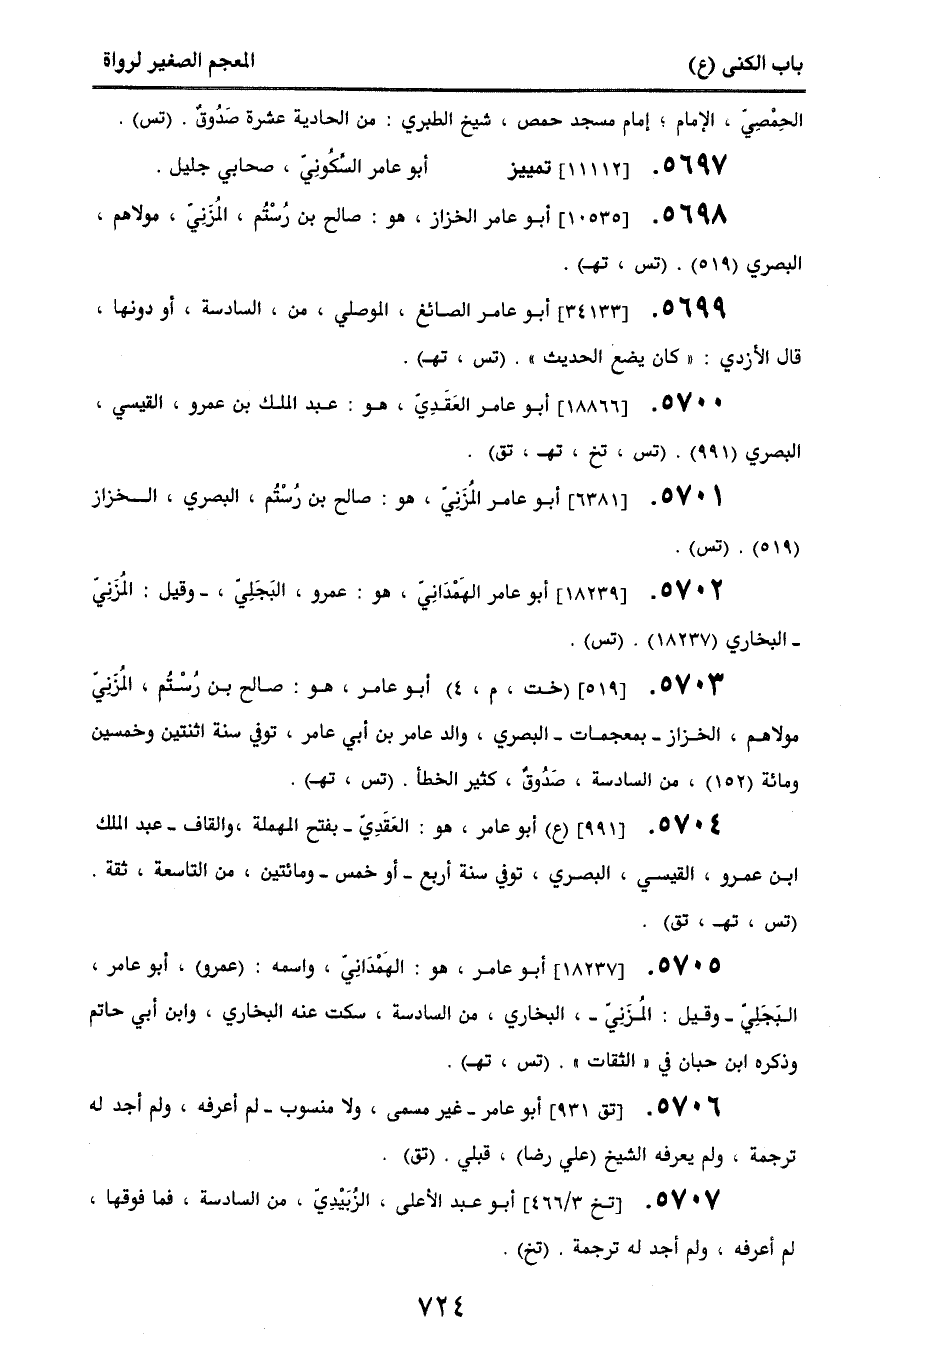 باب الكنى (ع)
المعجم الصغير لرواة
الحِمْصِيّ ، الإمام ؛ إمام مسجد حمص ، شيخ الطبري : من الحادية عشرة صَدُوقٌ . (تس) .
٥٦٩٧. [١١١١٢] تمييز أبو عامر السَّكُونِيّ ، صحابي جليل .
٥٦٩٨. [١٠٥٣٥] أبو عامر الخزاز ، هو : صالح بن رُسْتُم ، المُزَنِيّ ، مولاهم ،
البصري (٥١٩) . (تس ، تهـ) .
٥٦٩٩. [٣٤١٣٣] أبو عامر الصائغ ، الموصلي ، من ، السادسة ، أو دونها ،
قال الأزدي : « كان يضع الحديث » . (تس ، تهـ) .
٥٧٠٠. [١٨٨٦٦] أبو عامر العَقَدِيّ ، هو : عبد الملك بن عمرو ، القيسي ،
البصري (٩٩١) . (تس ، تخ ، تهـ ، تق) .
٥٧٠١. [٦٣٨١] أبو عامر المُزَنِيّ ، هو : صالح بن رُسْتُم ، البصري ، الخزاز
(٥١٩) . (تس) .
٥٧٠٢. [١٨٢٣٩] أبو عامر الهَمْدَانِيّ ، هو : عمرو ، البَجَلِيّ ، ـ وقيل : المُزَنِيّ
ـ البخاري (١٨٢٣٧) . (تس) .
٥٧٠٣. [٥١٩] (خت ، م ، ٤) أبو عامر ، هو : صالح بن رُسْتُم ، المُزَنِيّ
مولاهم ، الخزاز ـ بمعجمات ـ البصري ، والد عامر بن أبي عامر ، توفي سنة اثنتين وخمسين
ومائة (١٥٢) ، من السادسة ، صَدُوقٌ ، كثير الخطأ . (تس ، تهـ) .
٥٧٠٤. [٩٩١] (ع) أبو عامر ، هو : العَقَدِيّ ـ بفتح المهملة ،والقاف ـ عبد الملك
ابن عمرو ، القيسي ، البصري ، توفي سنة أربع ـ أو خمس ـ ومائتين ، من التاسعة ، ثقة .
(تس ، تهـ ، تق) .
٥٧٠٥. [١٨٢٣٧] أبو عامر ، هو : الهَمْدَانِيّ ، واسمه : (عمرو) ، أبو عامر ،
البَجَلِيّ ـ وقيل : المُزَنِيّ ـ ، البخاري ، من السادسة ، سكت عنه البخاري ، وابن أبي حاتم
وذكره ابن حبان في « الثقات » . (تس ، تهـ) .
٥٧٠٦. [تق ٩٣١] أبو عامر ـ غير مسمى ، ولا منسوب ـ لم أعرفه ، ولم أجد له
ترجمة ، ولم يعرفه الشيخ (علي رضا) ، قبلي . (تق) .
٥٧٠٧. [تخ ٤٦٦/٣] أبو عبد الأعلى ، الزُّبَيْدِيّ ، من السادسة ، فما فوقها ،
لم أعرفه ، ولم أجد له ترجمة . (تخ) .
٧٢٤